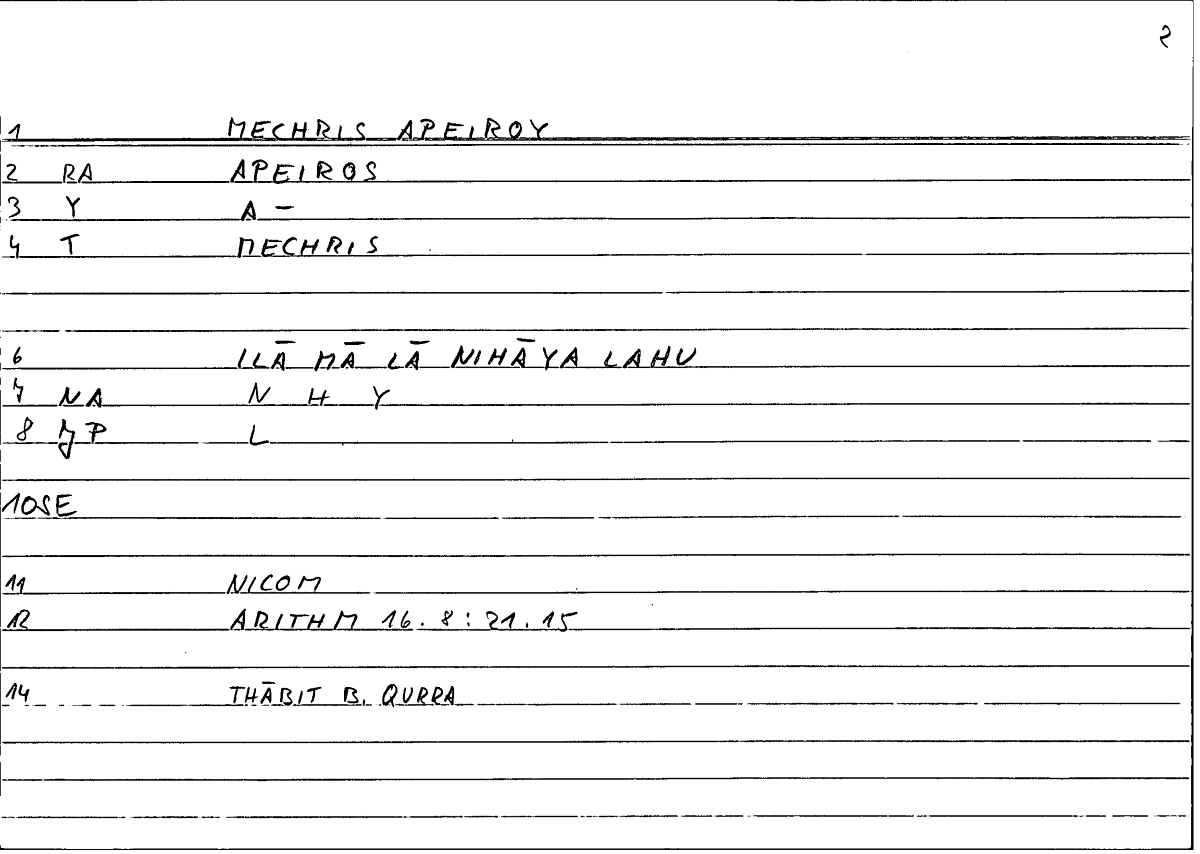 2
1 MECHRIS APEIROY
2 RA APEIROS
3 Y A -
4 T MECHRIS
6 ILĀ MĀ LĀ NIHĀYA LAHU
7 NA N H Y
8 JP L
10SE
11 NICOM
12 ARITHM 16.8:21.15
14 THĀBIT B. QURRA